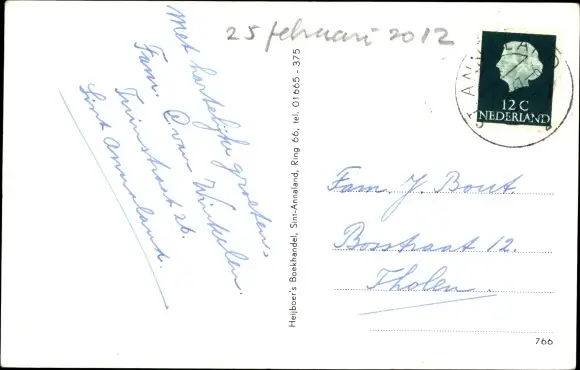 25 februari 2012
Met hartelijke groeten,
Fam. C. van Winkelen.
Tuinstraat 26.
Sint Annaland.
Heijboer's Boekhandel, Sint-Annaland, Ring 66, tel. 01665 - 375
12 C
NEDERLAND
Fam. J. Bout.
Bosstraat 12.
Tholen.
766